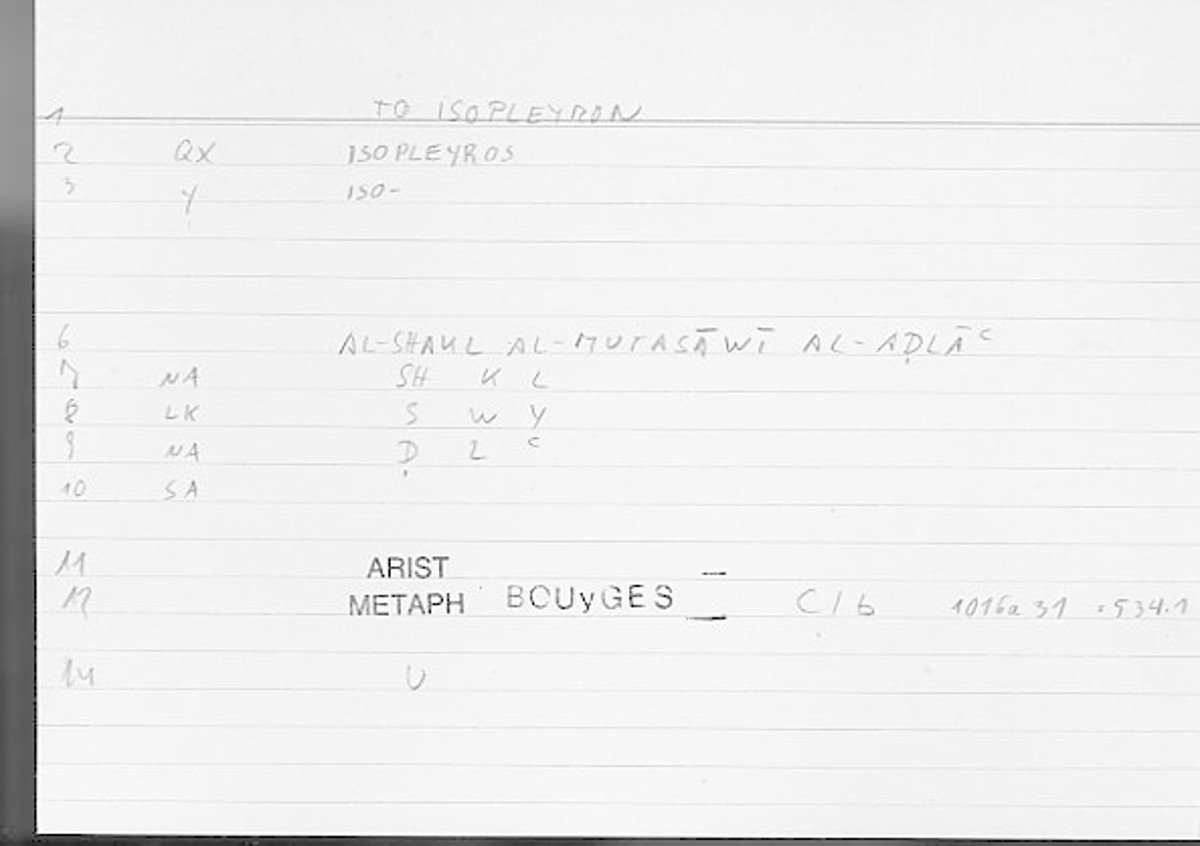 1 TO ISOPLEYRON
2 QX ISOPLEYROS
3 Y ISO-
6 AL-SHAKL AL-MUTASĀWĪ AL-AḌLĀʿ
7 NA SH K L
8 LK S W Y
9 NA Ḍ L ʿ
10 SA
11 ARIST —
12 METAPH BOUyGES — C/b 1016a 31 =534.1
14 U